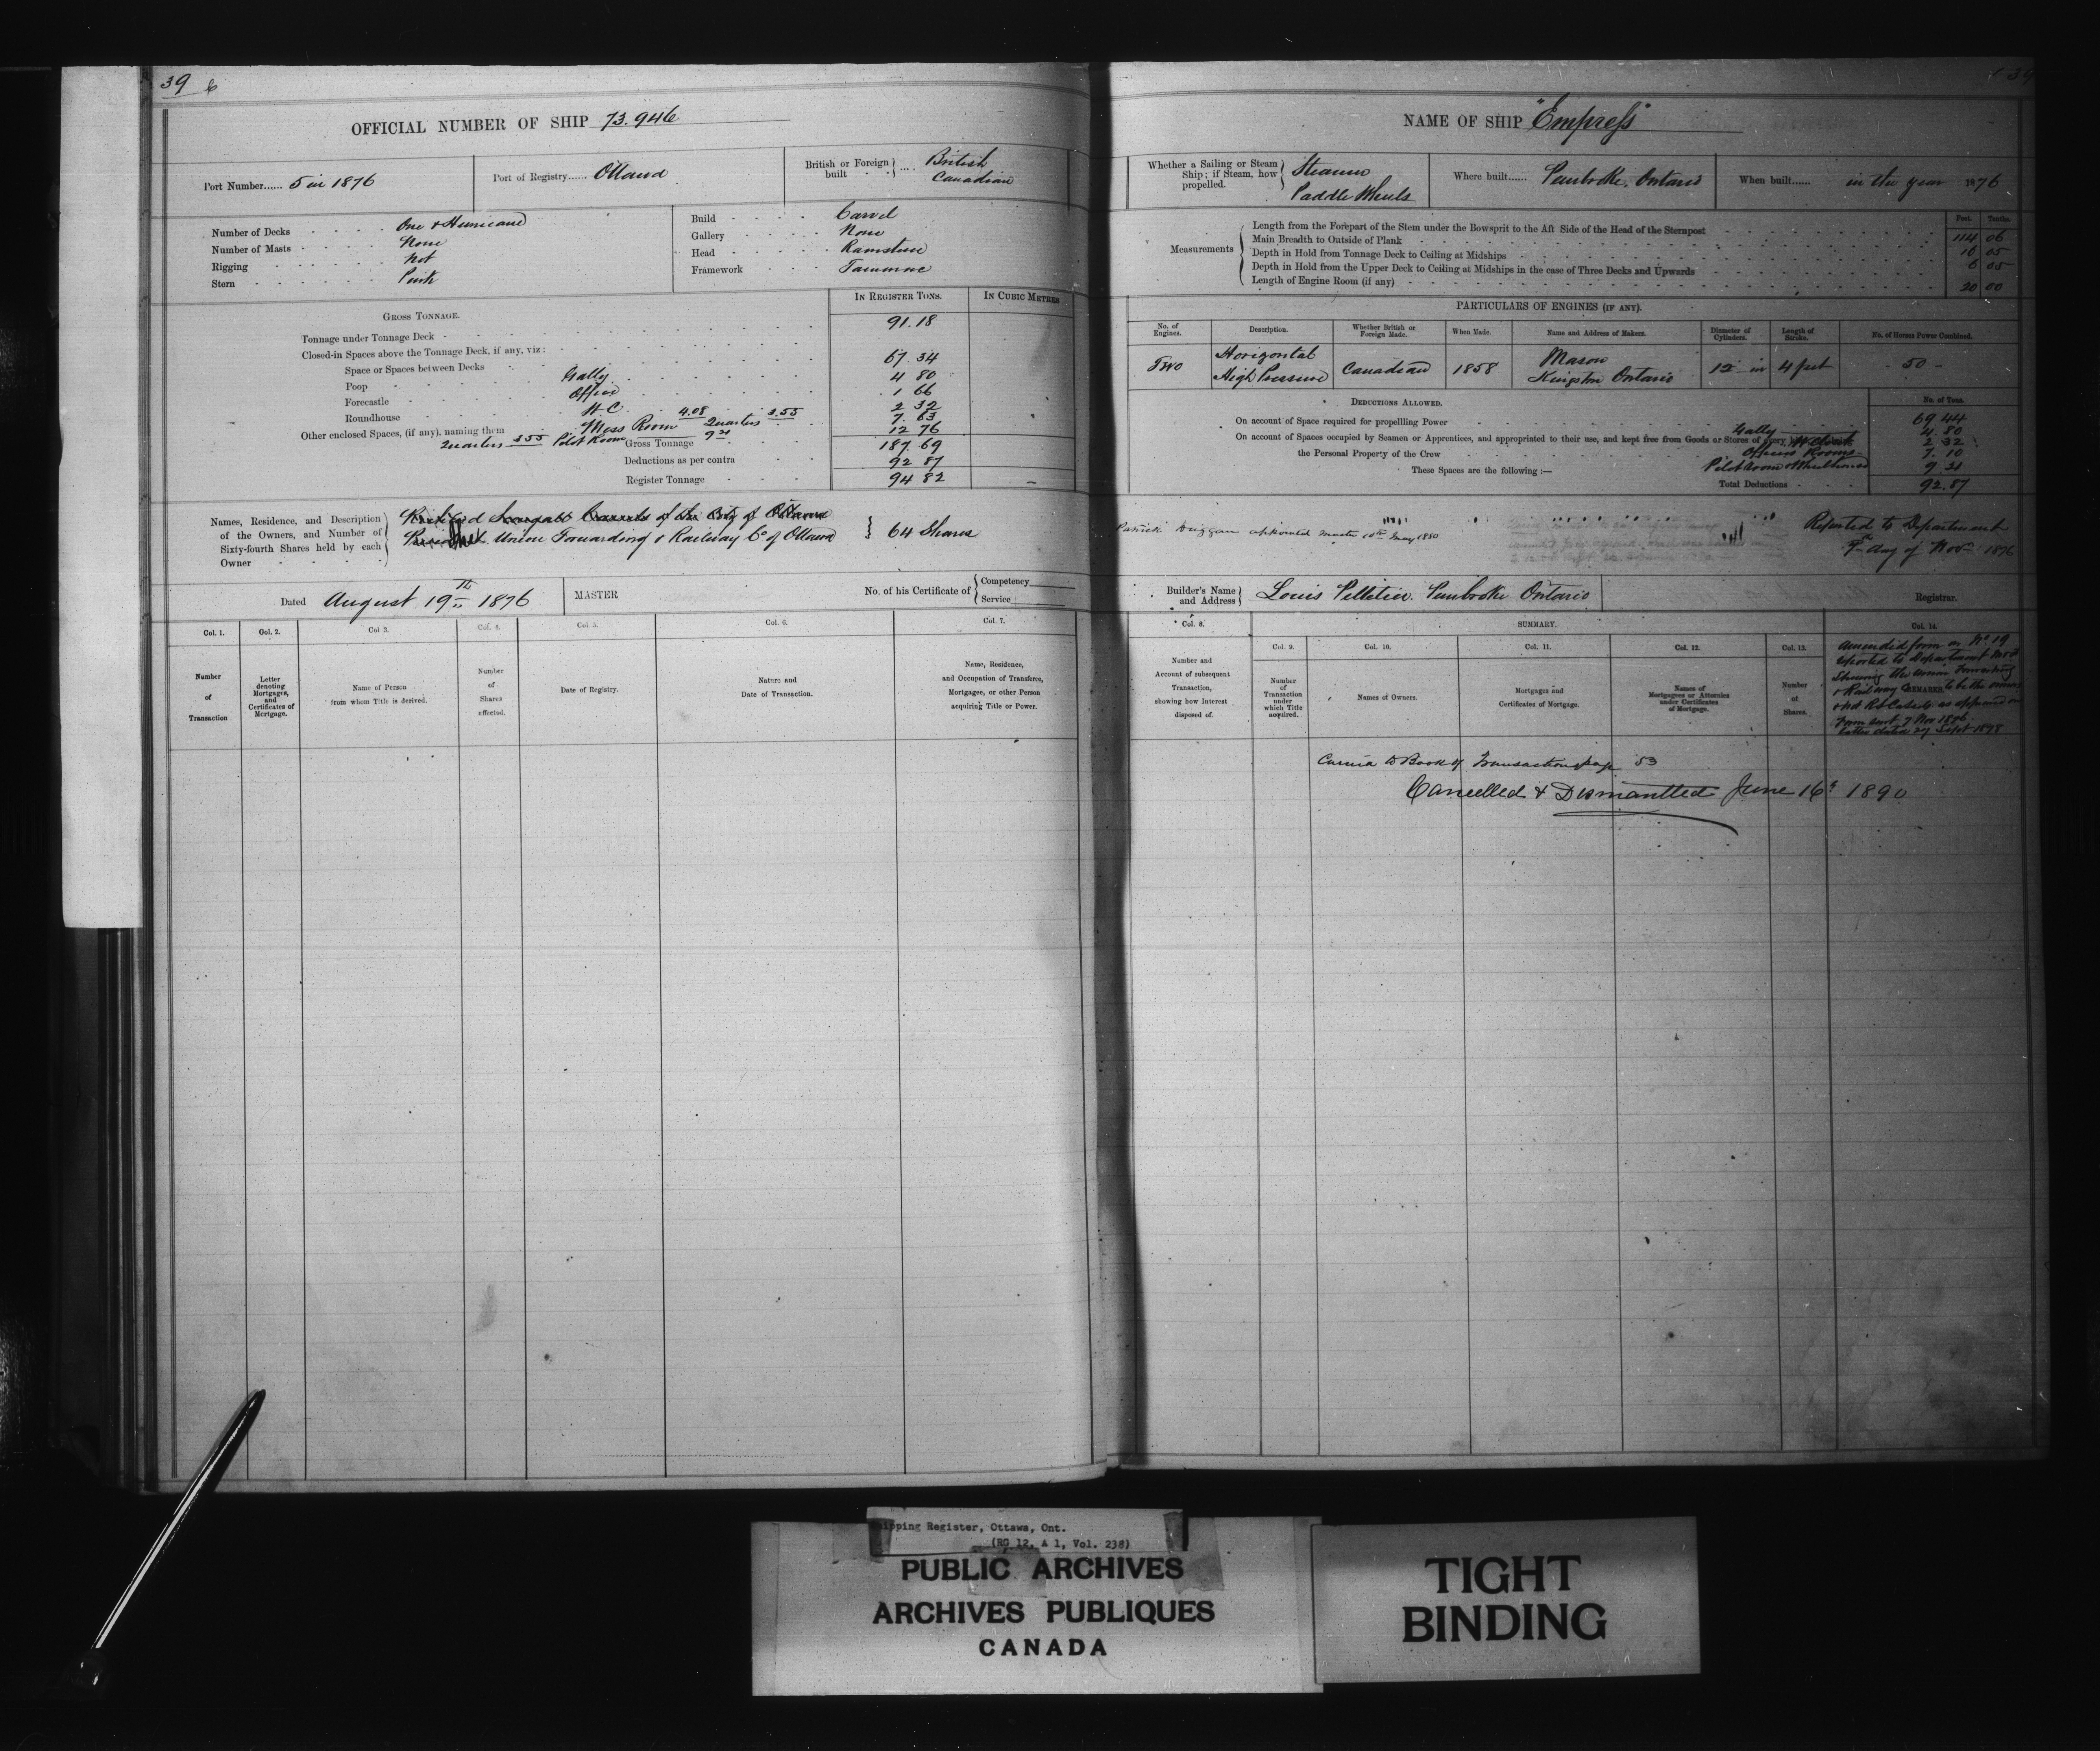 39 6
OFFICIAL NUMBER OF SHIP 73.946
Port Number...... 5 in 1876
Port of Registry...... Ottawa
British or Foreign built .... British Canadian
Number of Decks One & Hurricane
Number of Masts None
Rigging Not
Stern Pink
Build Carvel
Gallery None
Head
Framework Tamarac
IN REGISTER TONS.
IN CUBIC METRES
GROSS TONNAGE.
Tonnage under Tonnage Deck 91.18
Closed-in Spaces above the Tonnage Deck, if any, viz:
Space or Spaces between Decks 67 34
Poop Gally 4 80
Forecastle Office 1 66
Roundhouse W.C. 2 32
Other enclosed Spaces, (if any), naming them Mess Room 4.08 Quarters 3.55 7. 63
Quarters 3 55 Pilot Room 9 21 12 76
Gross Tonnage 187.69
Deductions as per contra 92 87
Register Tonnage 94 82
Names, Residence, and Description of the Owners, and Number of Sixty-fourth Shares held by each Owner
of the City of Ottawa
The Union Forwarding & Railway Co of Ottawa } 64 Shares
Dated August 19th 1876
MASTER
No. of his Certificate of { Competency
Service
Col. 1.
Col. 2.
Col 3.
Col. 4.
Col. 5.
Col. 6.
Col. 7.
Number of Transaction
Letter denoting Mortgages, and Certificates of Mortgage.
Name of Person from whom Title is derived.
Number of Shares affected.
Date of Registry.
Nature and Date of Transaction.
Name, Residence, and Occupation of Transferee, Mortgagee, or other Person acquiring Title or Power.
39
NAME OF SHIP "Empress"
Whether a Sailing or Steam Ship; if Steam, how propelled. Steamer Paddle Wheels
Where built...... Pembroke, Ontario
When built...... in the year 1876
Feet. Tenths.
Measurements
Length from the Forepart of the Stem under the Bowsprit to the Aft Side of the Head of the Sternpost 114 06
Main Breadth to Outside of Plank 05
Depth in Hold from Tonnage Deck to Ceiling at Midships 6 05
Depth in Hold from the Upper Deck to Ceiling at Midships in the case of Three Decks and Upwards
Length of Engine Room (if any) 20 00
PARTICULARS OF ENGINES (IF ANY).
No. of Engines.
Description.
Whether British or Foreign Made.
When Made.
Name and Address of Makers.
Diameter of Cylinders.
Length of Stroke.
No. of Horses Power Combined.
Two
Horizontal High Pressure
Canadian
1858
Mason Kingston Ontario
12 in
4 feet
50
DEDUCTIONS ALLOWED.
No. of Tons.
On account of Space required for propelling Power 69 44
Gally 4. 80
On account of Spaces occupied by Seamen or Apprentices, and appropriated to their use, and kept free from Goods or Stores of every 2 32
the Personal Property of the Crew Officers Rooms 7. 10
These Spaces are the following :— Pilot room Wheelhouse 9 21
Total Deductions 92.87
Patrick Duggan appointed master 10th May 1880
Reported to Department
9th day of Novr 1876
Builder's Name and Address Louis Pelletier. Pembroke Ontario
Registrar.
Col. 8.
SUMMARY.
Col. 14.
Col. 9.
Col. 10.
Col. 11.
Col. 12.
Col. 13.
Number and Account of subsequent Transaction, showing how Interest disposed of.
Number of Transaction under which Title acquired.
Names of Owners.
Mortgages and Certificates of Mortgage.
Names of Mortgagees or Attornies under Certificates of Mortgage.
Number of Shares.
Amended form No 19
reported to Department
Showing the Union Forwarding
& Railway REMARKS to be the owners
& not as appeared on
Form sent 7 Nov
letter dated 27 Sept
Carried to Book of Transactions page 53
Cancelled & Dismantled June 16th 1890
Shipping Register, Ottawa, Ont.
(RG 12, A 1, Vol. 238)
PUBLIC ARCHIVES
ARCHIVES PUBLIQUES
CANADA
TIGHT
BINDING